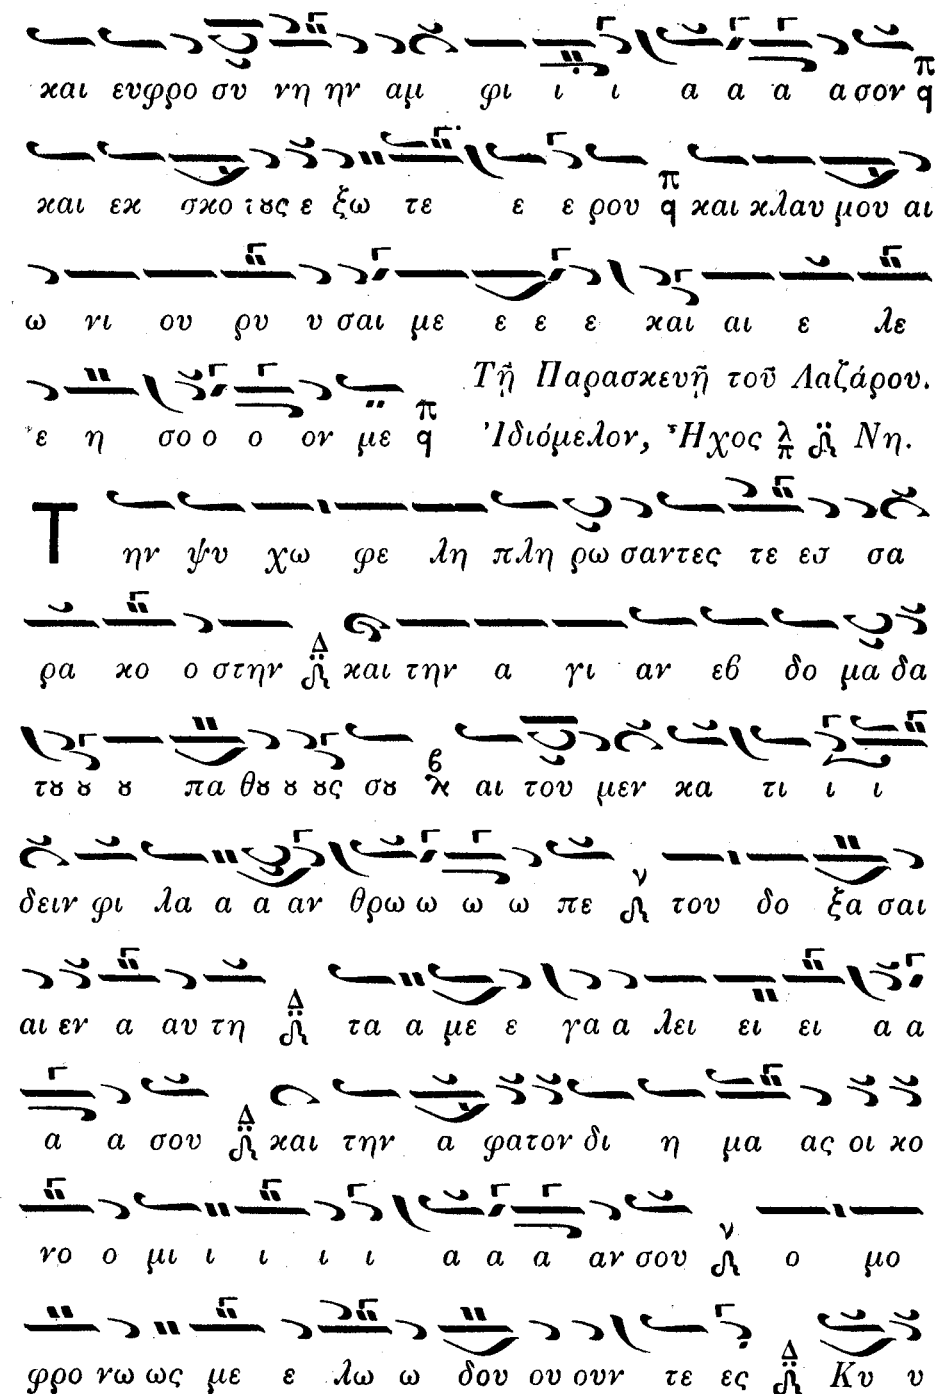 και ευφρο συ νη ην αμ φι ι ι α α α α σον π q
και εκ σκο τȣς ε ξω τε ε ε ρου π q και κλαυ μου αι
ω νι ου ρυ υ σαι με ε ε ε και αι ε λε
ε η σο ο ο ον με π q
Τῇ Παρασκευῇ τοῦ Λαζάρου.
Ἰδιόμελον, Ἦχος λ π Νη.
Τ ην ψυ χω φε λη πλη ρω σαντες τε εσ σα
ρα κο ο στην Δ και την α γι αν εβ δο μα δα
τȣ ȣ ȣ πα θȣ ȣ ȣς σȣ β κ αι του μεν κα τι ι ι
δειν φι λα α α αν θρω ω ω ω πε ν του δο ξα σαι
αι εν α αυ τη Δ τα α με ε γα α λει ει ει α α
α α σου Δ και την α φατον δι η μα ας οι κο
νο ο μι ι ι ι ι α α α αν σου ν ο μο
φρο νω ως με ε λω ω δου ου ουν τε ες Δ Κυ υ